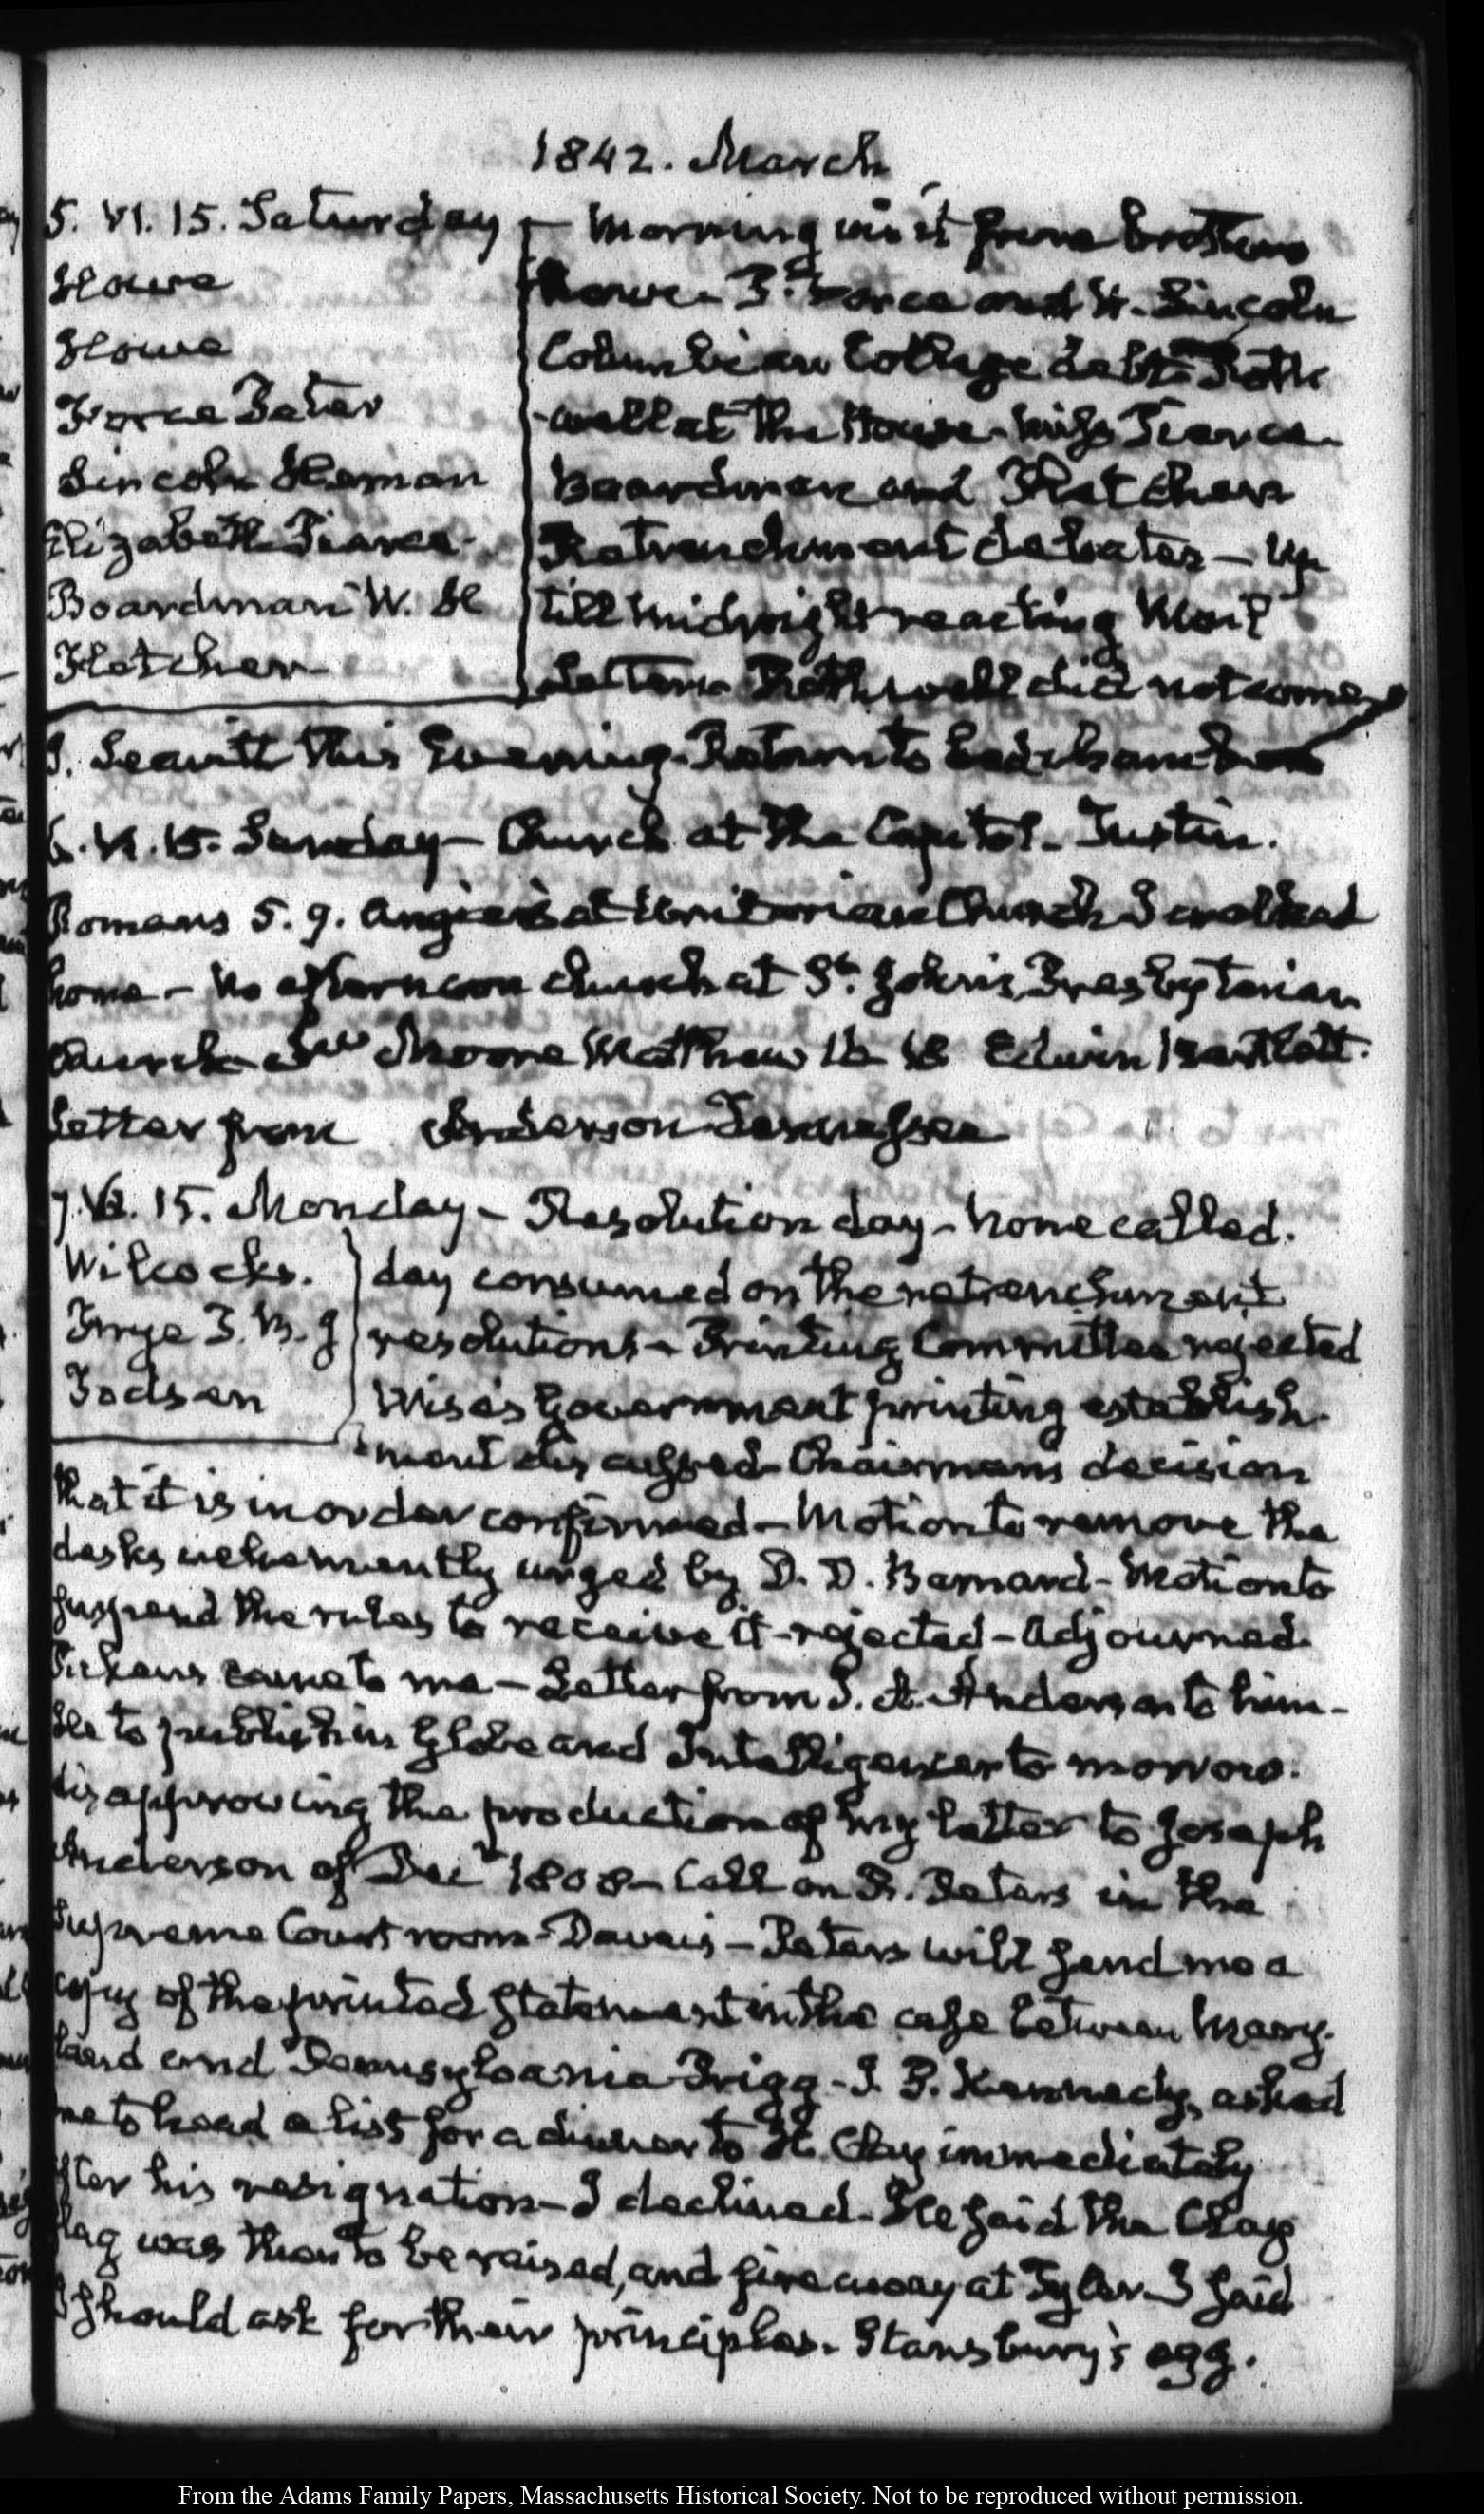 1842. March
5. VI. 15. Saturday
Howe
Howe
Force Peter
Lincoln Heman
Elizabeth Pierce
Boardman W. H
Fletcher
— Morning visit from brothers
Howe. P. Force and H. Lincoln
Columbian College debt Roth
-well at the House. Miss Pierce
Boardman and Fletcher
Retrenchment debates — Up
till Midnight reading
Letters Rothwell did not come
J. Leavitt this Evening. Return to bedchamber
6. VI. 15. Sunday — Church at the Capitol. Tustin.
Romans 5. 9. at Unitarian Church I walked
home — No afternoon church at St. John's, Presbyterian
Church Moore Matthew 16 18 Edwin Bartlett.
Letter from Anderson Tennessee
7. VI. 15. Monday — Resolution day — None called.
Wilcocks.
Frye
Todsen
day consumed on the retrenchment
resolutions — Printing Committee rejected
Wise's Government printing establish
-ment discussed. Chairman's decision
that it is in order confirmed — Motion to remove the
desks vehemently urged by D. D. Barnard — Motion to
suspend the rules to receive it — rejected — Adjourned.
came to me — Letter from Anderson to him —
He to publish in Globe and Intelligencer to morrow.
disapproving the production of my letter to Joseph
Anderson of Decr 1808 — Call on R. Peters in the
Supreme Court room — Davis — Peters will send me a
copy of the printed statement in the case between Mary-
land and Pennsylvania Prigg — J. P. Kennedy, asked
me to head a list for a dinner to H. Clay immediately
after his resignation — I declined. He said the Clay
flag was then to be raised, and fire away at Tyler. I said
I should ask for their principles. Stansbury's egg.
From the Adams Family Papers, Massachusetts Historical Society. Not to be reproduced without permission.